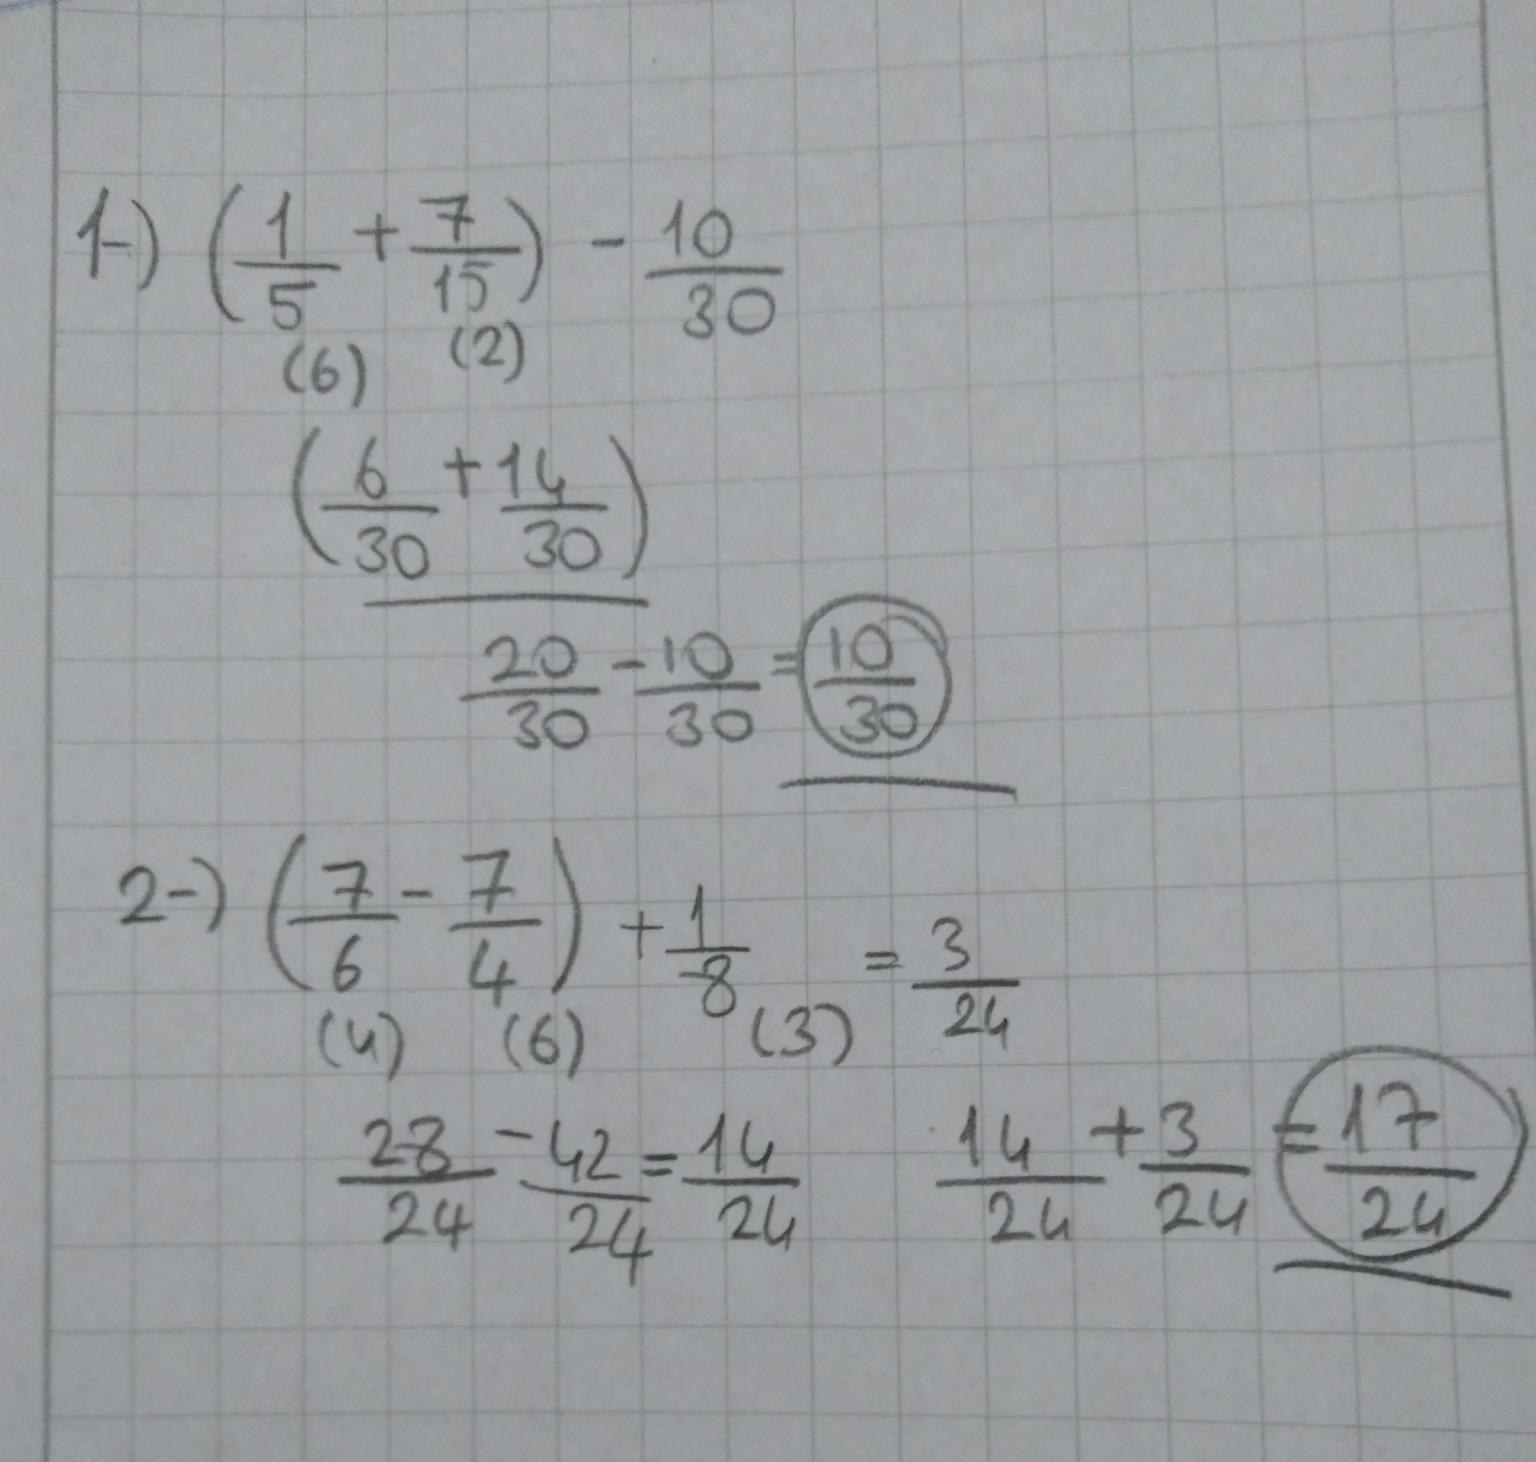 1-) (1/5 + 7/15) - 10/30
(6) (2)
(6/30 + 14/30)
20/30 - 10/30 = 10/30
2-) (7/6 - 7/4) + 1/8 = 3/24
(4) (6) (3)
28/24 - 42/24 = 14/24 14/24 + 3/24 = 17/24